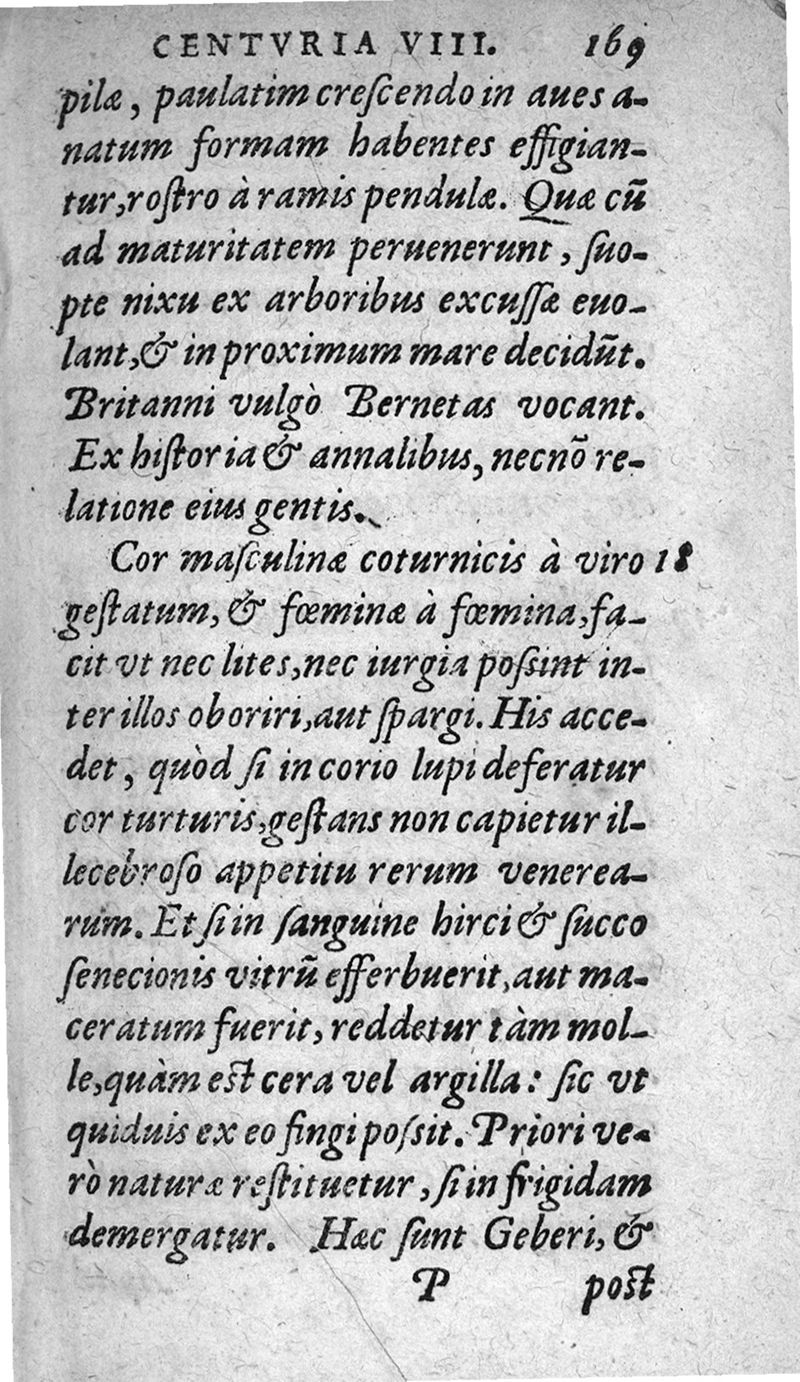 CENTVRIA VIII. 169
pilæ, paulatim creſcendo in aues a-
natum formam habentes effigian-
tur, roſtro à ramis pendulæ. Quæ cũ
ad maturitatem peruenerunt, ſuo-
pte nixu ex arboribus excuſſæ euo-
lant, & in proximum mare decidũt.
Britanni vulgò Bernetas vocant.
Ex hiſtoria & annalibus, necnõ re-
latione eius gentis.
Cor maſculinæ coturnicis à viro 18
geſtatum, & fœminæ à fœmina, fa-
cit vt nec lites, nec iurgia poſsint in-
ter illos oboriri, aut ſpargi. His acce-
det, quòd ſi in corio lupi deferatur
cor turturis, geſtans non capietur il-
lecebroſo appetitu rerum venerea-
rum. Et ſi in ſanguine hirci & ſucco
ſenecionis vitrũ efferbuerit, aut ma-
ceratum fuerit, reddetur tàm mol-
le, quàm eſt cera vel argilla: ſic vt
quiduis ex eo fingi poſsit. Priori ve-
rò naturæ reſtituetur, ſi in frigidam
demergatur. Hæc ſunt Geberi, &
P poſt